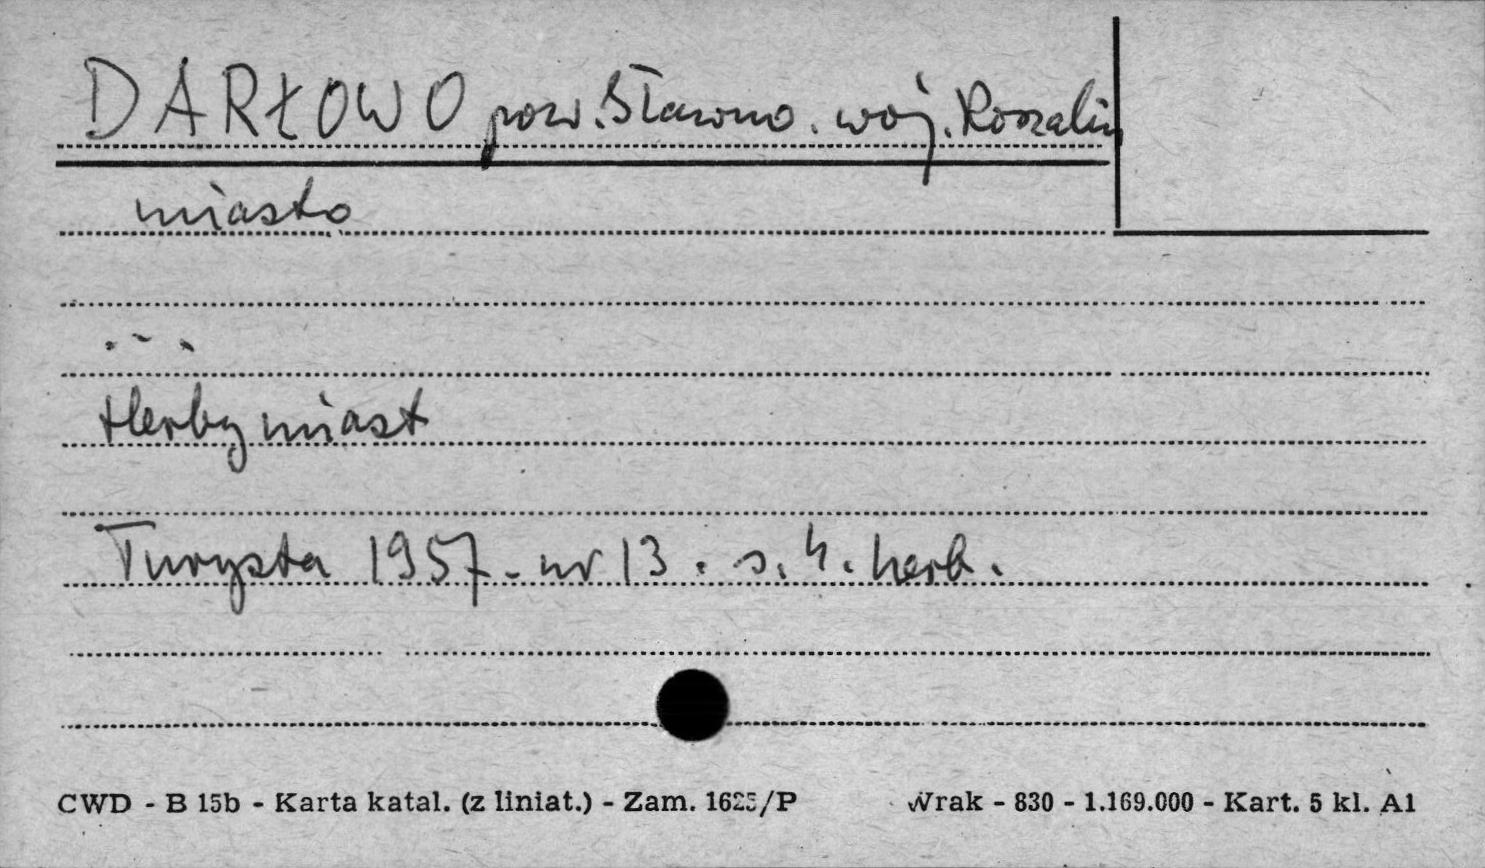 DARŁOWO pow. Sławno. woj. Koszalin
miasto
...
Herby miast
Turysta 1957 - nr 13. s. 4. herb.
CWD - B 15b - Karta katal. (z liniat.) - Zam. 1625/P
Wrak - 830 - 1.169.000 - Kart. 5 kl. A1